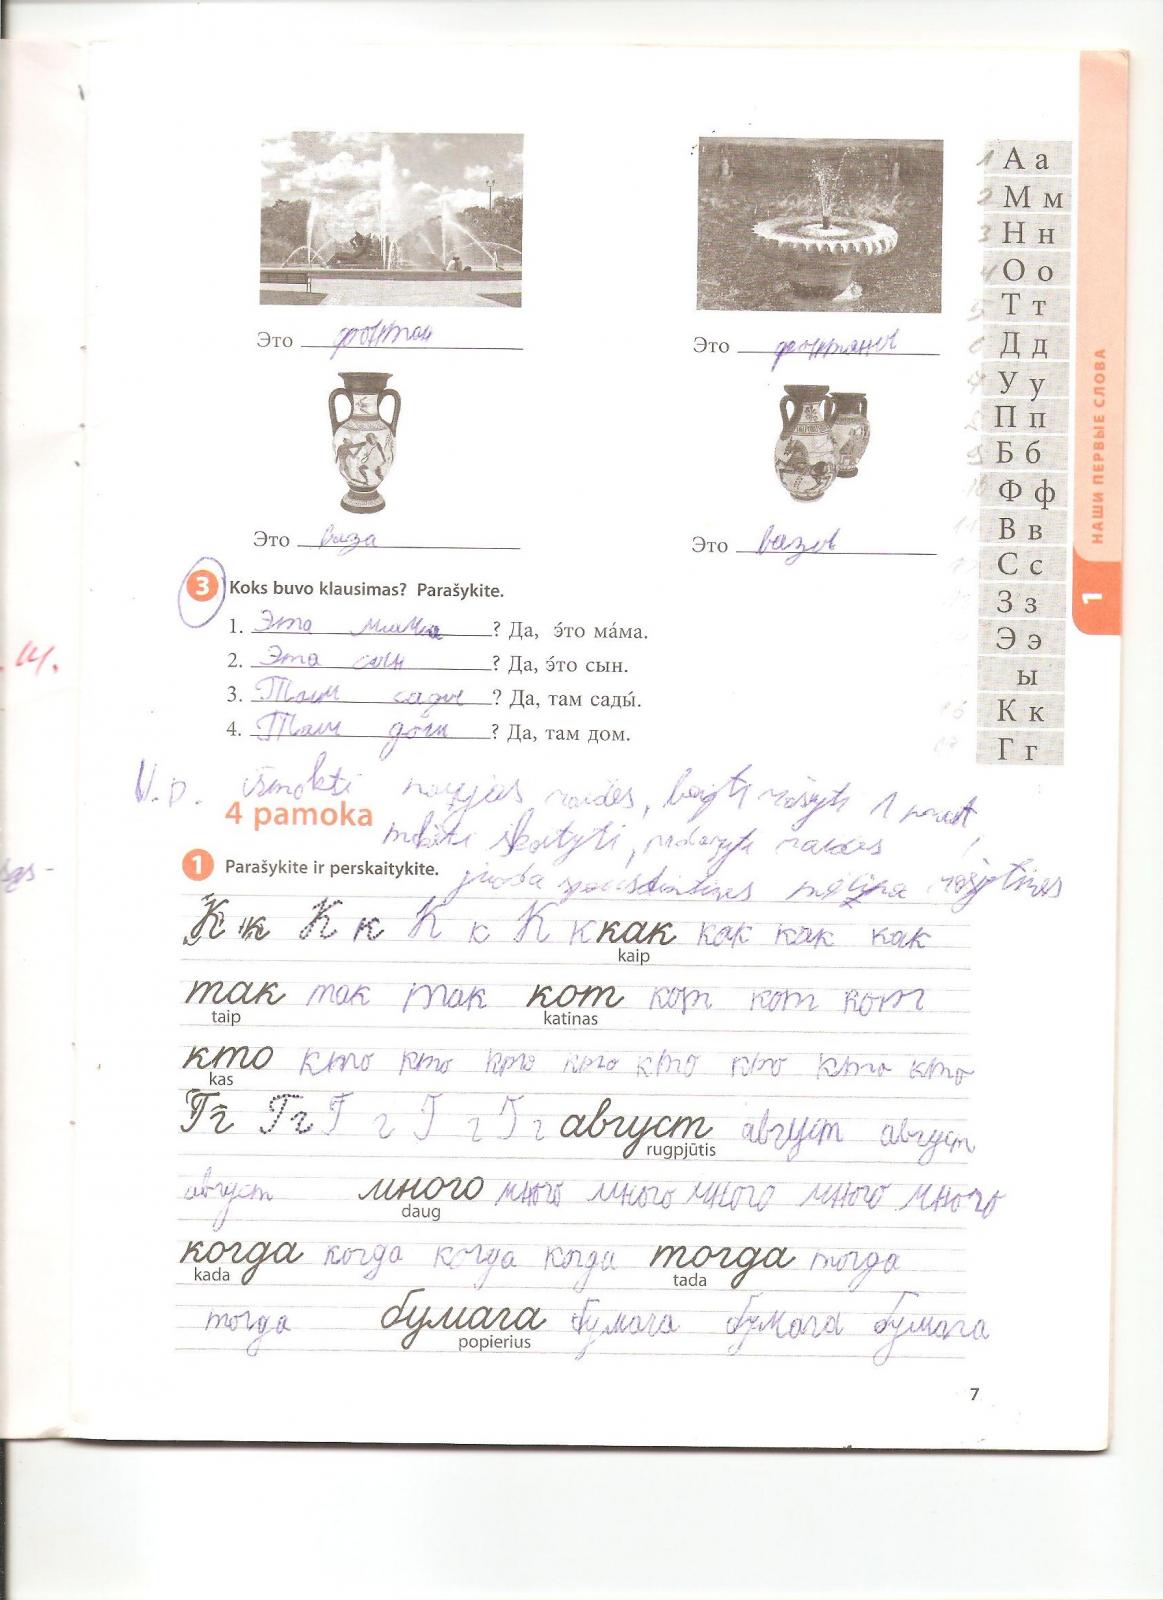 А а
М м
Н н
О о
Т т
Д д
У у
П п
Б б
Ф ф
В в
С с
З з
Э э
ы
К к
Г г
НАШИ ПЕРВЫЕ СЛОВА
1
Это фонтан Это
Это ваза Это вазы
3 Koks buvo klausimas? Parašykite.
1. Эта мама ? Да, э́то ма́ма.
2. Эта сын ? Да, э́то сын.
3. Там сады ? Да, там сады́.
4. Там дом ? Да, там дом.
N.D. išmokti naujas raides, baigti rašyti 1
4 pamoka
mokėti skaityti, raides
1 Parašykite ir perskaitykite.
juoda spausdintines mėlyna rašytines
К к К к К к К к как как как как
kaip
так так так кот кот кот кот
taip katinas
кто кто кто кто кто кто кто кто кто
kas
Гг Гг Г г Г г Г г август август август
rugpjūtis
август много много много много много много
daug
когда когда когда когда тогда тогда
kada tada
тогда бумага бумага бумага бумага
popierius
7